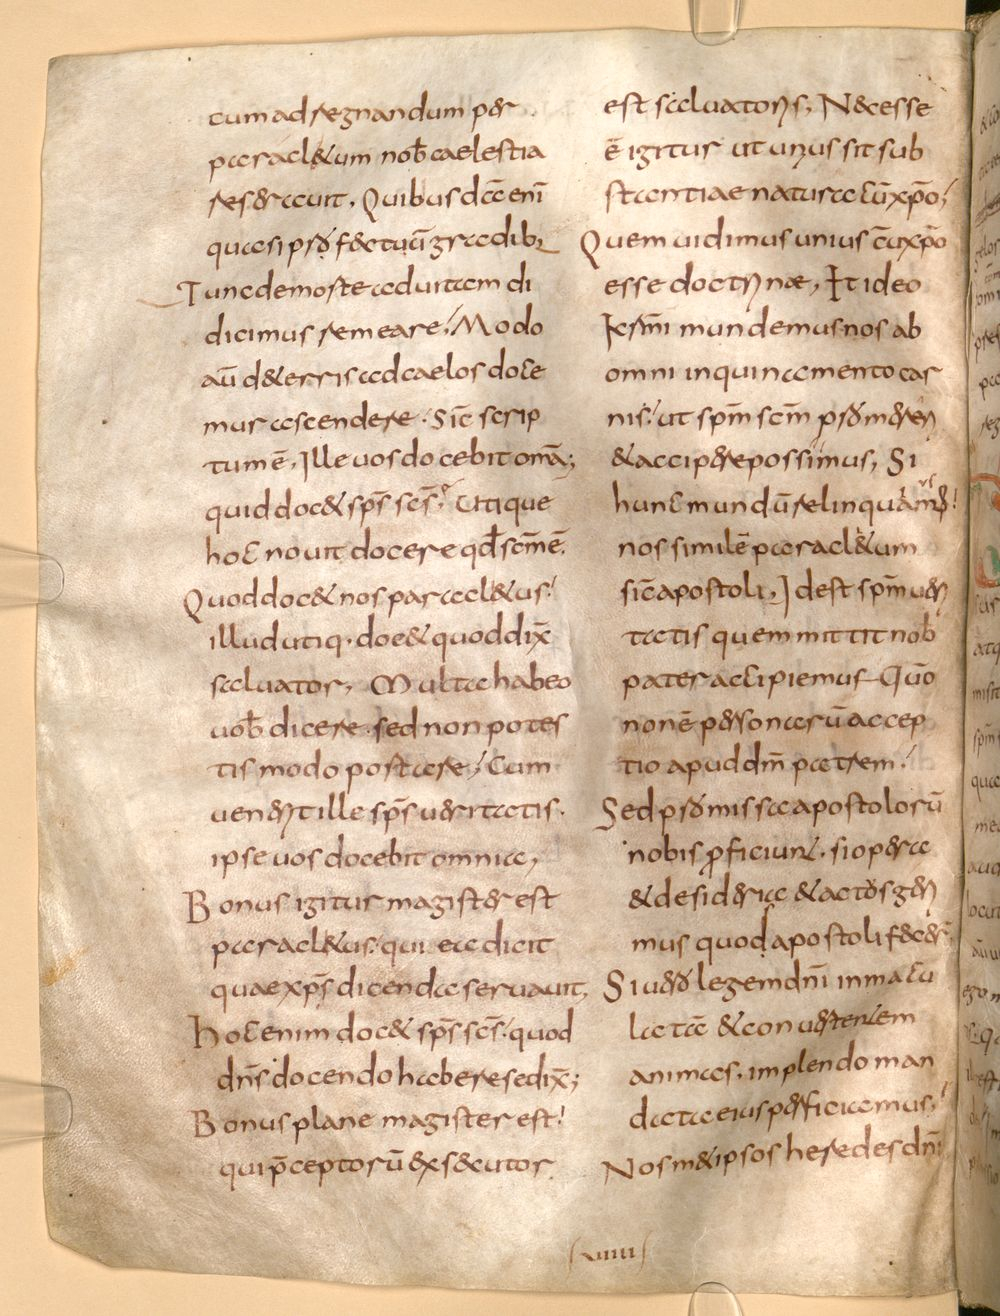 cum ad regnandum per
paracl&um nob̄ caelestia
reserauit, Quibus dā enī
quaesi pro fectuū gradib;
Tunc de morte ad uitam di
dicimus remeare; Modo
aū de terris ad caelos doce
mur ascendere. Sic̄ scrip
tum ē, Ille uos docebit om̄a;
quid doc& sp̄s sc̄s; Utique
hoc nouit docere qd̄ sc̄m ē.
Quod doc& nos paracl&us;
illud utiq· doc& quod dix̄
saluator, Multa habeo
uob̄ dicere. sed non potes
tis modo portare; Cum
uenerit ille sp̄s ueritatis.
ipse uos docebit omnia,
Bonus igitur magister est
paracl&us. qui ea dicit
quae xp̄s dicenda seruauit,
Hoc enim doc& sp̄s sc̄s. quod
dn̄s docendo habere se dix̄;
Bonus plane magister est;
qui p̄ceptorū exsecutor
est saluatoris, N&esse
ē igitur ut unus sit sub
stantiae naturae cū xp̄o;
Quem uidimus unius cū xp̄o
esse doctrinæ, Et ideo
kr̄mi mundemus nos ab
omni inquinamento car
nis. ut sp̄m sc̄m promereri
& accipere possimus, Si
hunc mundū relinquamus;
nos similē paracl&um
sic̄ apostoli, Id est sp̄m ueri
tatis quem mittit nob̄
pater accipiemus Quō
non ē personarū accep
tio apud dm̄ patrem;
Sed promissa apostolorū
nobis ꝓficiunt. si opera
& desideria & actos geri
mus quod apostoli fecer̄,
Si uero legem dn̄i inmacu
latā & conuertentem
animas. implendo man
data eius perficiamus;
Nos m&ipsos heredes dn̄i
xuiiii